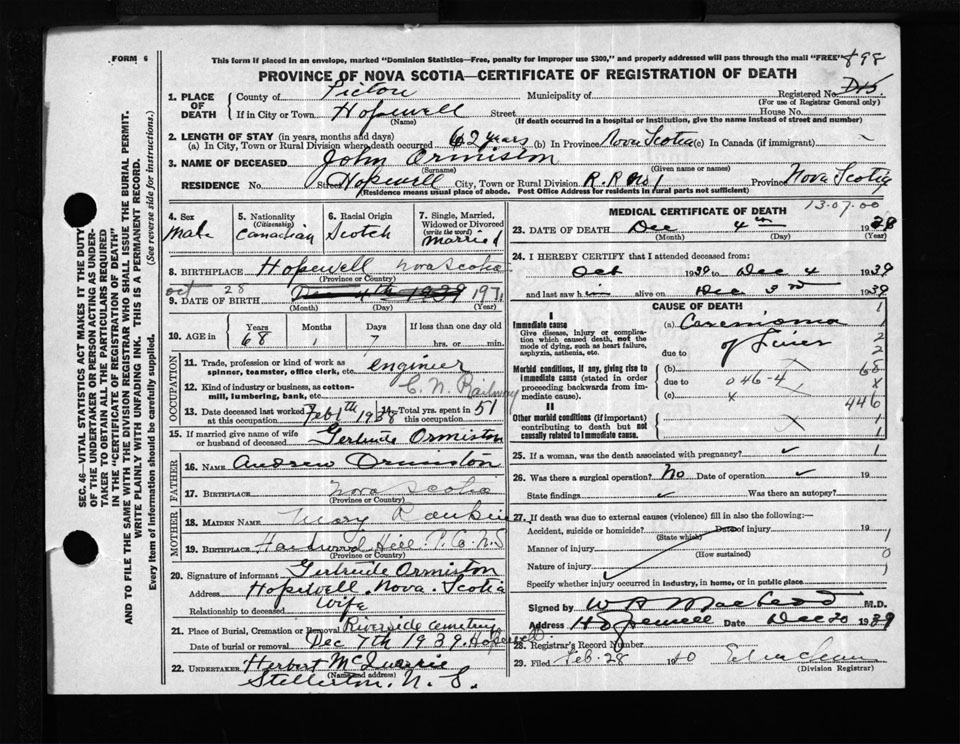 FORM 6
This form if placed in an envelope, marked "Dominion Statistics—Free, penalty for improper use $300," and properly addressed will pass through the mail "FREE" 898
PROVINCE OF NOVA SCOTIA—CERTIFICATE OF REGISTRATION OF DEATH
1. PLACE OF DEATH
County of Pictou Municipality of Registered No.
(For use of Registrar General only)
If in City or Town Hopewell Street House No.
(Name) (If death occurred in a hospital or institution, give the name instead of street and number)
2. LENGTH OF STAY (in years, months and days)
(a) In City, Town or Rural Division where death occurred 62 years (b) In Province Nova Scotia (c) In Canada (if immigrant)
3. NAME OF DECEASED John Ormiston
(Surname) (Given name or names)
RESIDENCE No. Street Hopewell City, Town or Rural Division R.R No 1 Province Nova Scotia
(Residence means usual place of abode. Post Office Address for residents in rural parts not sufficient)
4. Sex Male
5. Nationality (Citizenship) Canadian
6. Racial Origin Scotch
7. Single, Married, Widowed or Divorced (write the word) Married
8. BIRTHPLACE Hopewell Nova Scotia
(Province or Country)
Oct 28
9. DATE OF BIRTH Dec 4th 1939 1971
(Month) (Day) (Year)
10. AGE in Years 68 Months 1 Days 7 If less than one day old hrs. or min.
OCCUPATION
11. Trade, profession or kind of work as spinner, teamster, office clerk, etc. engineer
12. Kind of industry or business, as cotton-mill, lumbering, bank, etc. C. N. Railway
13. Date deceased last worked at this occupation Feb 1th 1938 14. Total yrs. spent in this occupation 51
15. If married give name of wife or husband of deceased Gertrude Ormiston
FATHER
16. NAME Andrew Ormiston
17. BIRTHPLACE Nova Scotia
(Province or Country)
MOTHER
18. MAIDEN NAME Mary Rankin
19. BIRTHPLACE Hardwood Hill P. Co. N.S
(Province or Country)
20. Signature of informant Gertrude Ormiston
Address Hopewell Nova Scotia
Relationship to deceased wife
21. Place of Burial, Cremation or Removal Riverside cemetery
Date of burial or removal Dec 7th 1939. Hopewell.
22. UNDERTAKER Herbert McQuarrie
(Name and address)
Stellerton, N. S.
MEDICAL CERTIFICATE OF DEATH
13-07-00
23. DATE OF DEATH Dec 4th 1939
(Month) (Day) (Year)
24. I HEREBY CERTIFY that I attended deceased from:
Oct 1939 to Dec 4 1939
and last saw him alive on Dec 3rd 1939
CAUSE OF DEATH
I
Immediate cause
Give disease, injury or complication which caused death, not the mode of dying, such as heart failure, asphyxia, asthenia, etc.
(a) Carcinoma
due to of Liver
Morbid conditions, if any, giving rise to immediate cause (stated in order proceeding backwards from immediate cause).
(b)
due to 046-4
(c) x
II
Other morbid conditions (if important) contributing to death but not causally related to immediate cause.
1
2
2
68
x
446
1
1
25. If a woman, was the death associated with pregnancy?
26. Was there a surgical operation? No Date of operation 19
State findings Was there an autopsy?
27. If death was due to external causes (violence) fill in also the following:—
Accident, suicide or homicide? Date of injury 19
(State which)
Manner of injury
(How sustained)
Nature of injury
Specify whether injury occurred in industry, in home, or in public place
1
0
1
Signed by W A MacLeod M.D.
Address Hopewell Date Dec 20 1939
28. Registrar's Record Number
29. Filed Feb. 28 1940
(Division Registrar)
SEC. 46—VITAL STATISTICS ACT MAKES IT THE DUTY
OF THE UNDERTAKER OR PERSON ACTING AS UNDER-
TAKER TO OBTAIN ALL THE PARTICULARS REQUIRED
IN THE "CERTIFICATE OF REGISTRATION OF DEATH"
AND TO FILE THE SAME WITH THE DIVISION REGISTRAR WHO SHALL ISSUE THE BURIAL PERMIT.
WRITE PLAINLY WITH UNFADING INK. THIS IS A PERMANENT RECORD.
Every item of information should be carefully supplied. (See reverse side for instructions.)